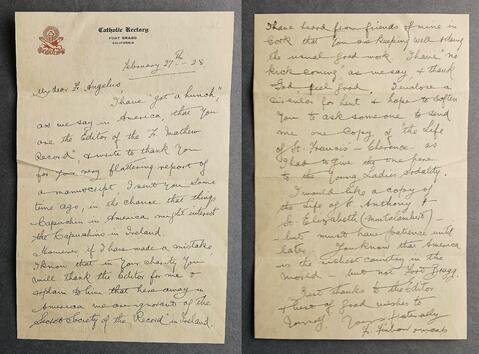 Catholic Rectory
FORT BRAGG
CALIFORNIA
February 27th - 28
My dear Fr. Angelus,
I have "got a hunch",
as we say in America, that you
are the Editor of the "Fr. Mathew
Record", & write to thank you
for your very flattering report of
a manuscript I sent you some
time ago, in the chance that things
Capuchin in America might interest
the Capuchins in Ireland.
However if I have made a mistake,
I know that in your charity you
will thank the Editor for me &
explain to him that here away in
America we are ignorant of the
Secret Society of the "Record" in Ireland.
I have heard from friends of mine in
Cork that you are keeping well & doing
the usual good work. I have "no
kick coming" as we say & thank
God feel good. I enclose a
for Lent & hope to
you to ask someone to send
me one Copy of the Life
of St. Francis - Clarence as
I had to give the one here
to the Young Ladies Sodality.
I would like a copy of
the Life of S. Anthony &
S. Elizabeth (Montalembert) -
- but must have patience until
later. You know that America
is the richest country in the
world - but not Fort Bragg.
Best thanks to the Editor
& best of good wishes to
yourself. Yours fraternally
Fr.